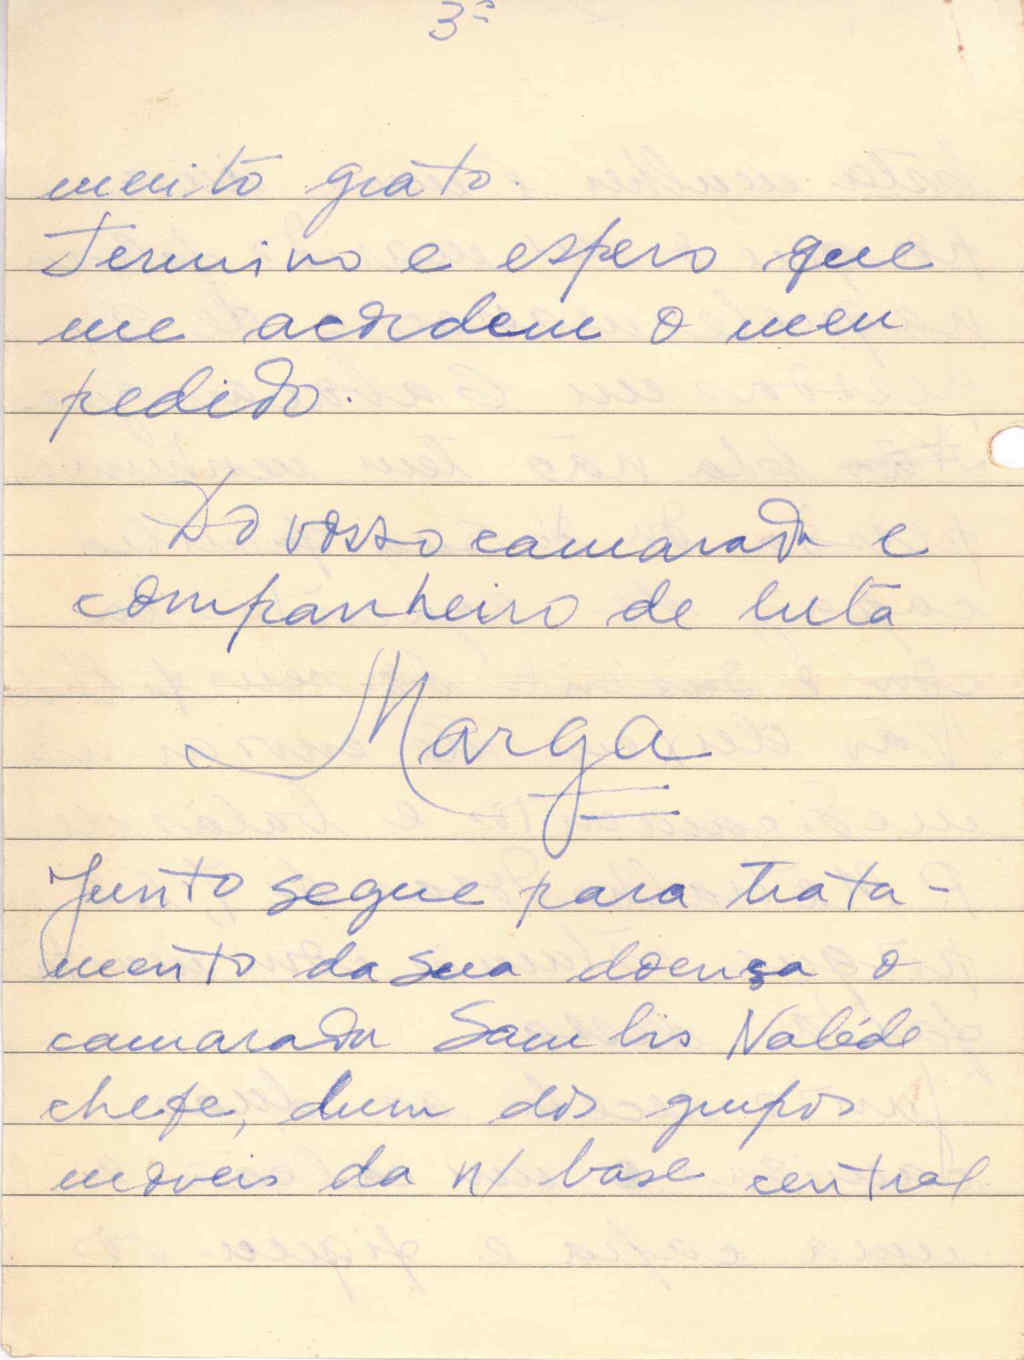 3ª
muito grato.
Termino e espero que
me acordem o meu
pedido.
Do vosso camarada e
companheiro de luta
Marga
Junto segue para trata-
mento da sua doença o
camarada Sam bis Nabéde
chefe, dum dos grupos
moveis da n/ base central